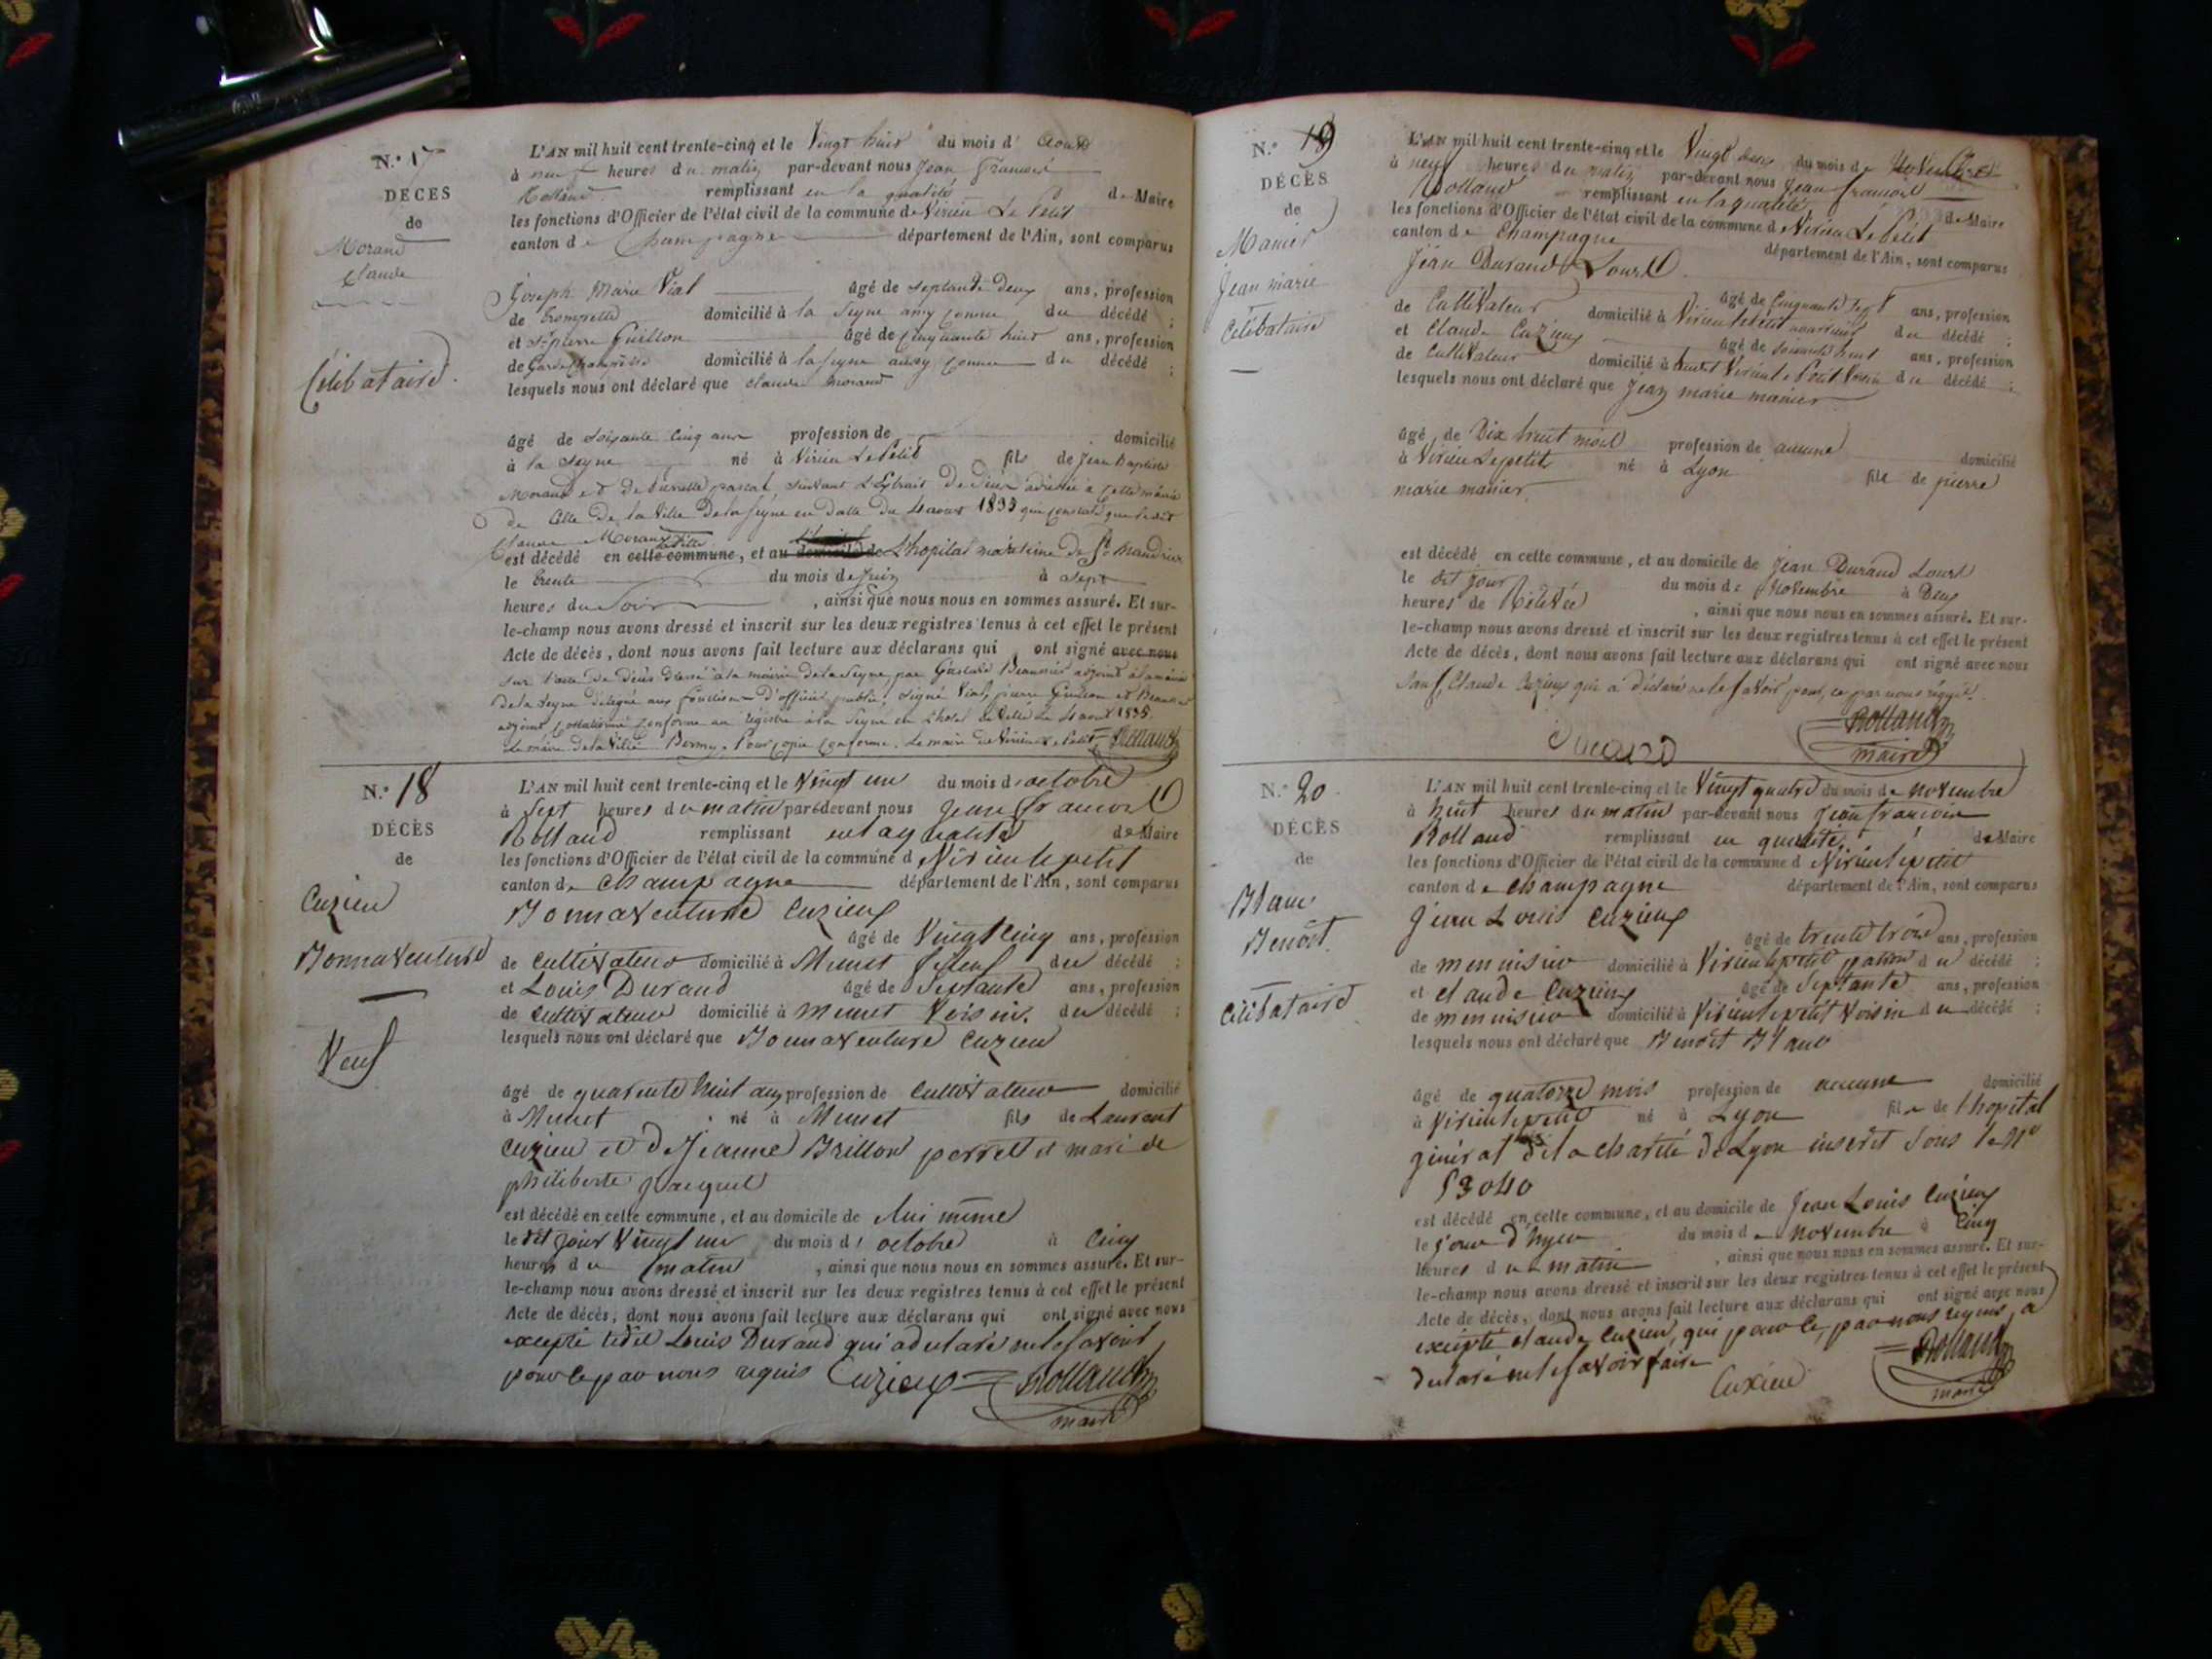 N.° 17
DÉCÈS
de
Morand
Claude
Célibataire.
L'AN mil huit cent trente-cinq et le Vingt huit du mois d' Août
à neuf heures du matin par-devant nous Jean François
Rolland remplissant en la qualité de Maire
les fonctions d'Officier de l'état civil de la commune de Virieu Le Petit
canton de Champagne département de l'Ain, sont comparus
Joseph Marie Vial âgé de septante deux ans, profession
de domicilié à la Seyne amy du décédé ;
et Guillon âgé de cinquante huit ans, profession
de Garde Champêtre domicilié à la seyne aussy du décédé ;
lesquels nous ont déclaré que claude morand
âgé de soixante cinq ans profession de domicilié
à la Seyne né à Virieu Le Petit fils de Jean Baptiste
Morand et de pascal suivant L'Extrait De Décès adressée a cette mairie
de Celle De la Ville De la Seyne en datte Du 4 aout 1835 qui constate que le dit
Claude Morand
est décédé en cette commune, et au domicile de L'hopital maritime de St. Mandrier
le trente du mois de Juin à sept
heures du Soir , ainsi que nous nous en sommes assuré. Et sur-
le-champ nous avons dressé et inscrit sur les deux registres tenus à cet effet le présent
Acte de décès, dont nous avons fait lecture aux déclarans qui ont signé avec nous
sur l'acte De Décès dressé à la mairie de la Seyne par adjoint à la mairie
De la Seyne délégué aux fonctions D'officier public, signé Vial, pierre Guillon et
adjoint Collationné conforme au registre à la Seyne en L'hotel de Ville Le 4 aout 1835.
Le maire de la Ville Pour copie conforme. Le maire de Virieu Le Petit Rolland
N.° 18
DÉCÈS
de
Cuzieu
Bonnaventure
Veuf
L'AN mil huit cent trente-cinq et le Vingt un du mois d'octobre
à Sept heures du matin par-devant nous Jean francois
Rolland remplissant en la qualité de Maire
les fonctions d'Officier de l'état civil de la commune d Virieu le petit
canton de Champagne département de l'Ain, sont comparus
Bonnaventure Cuzieux
âgé de Vingt Cinq ans, profession
de Cultivateur domicilié à Munet du décédé ;
et Louis Durand âgé de Septante ans, profession
de Cultivateur domicilié à Munet Voisin du décédé ;
lesquels nous ont déclaré que Bonnaventure Cuzieu
âgé de quarente huit ans profession de Cultivateur domicilié
à Munet né à Munet fils de Laurent
Cuzieu et de Jeanne Brillon perrett et mari de
philiberte
est décédé en cette commune, et au domicile de lui même
le dit jour Vingt un du mois d'octobre à Cinq
heures du matin , ainsi que nous nous en sommes assuré. Et sur-
le-champ nous avons dressé et inscrit sur les deux registres tenus à cet effet le présent
Acte de décès, dont nous avons fait lecture aux déclarans qui ont signé avec nous
excepté ledit Louis Durand qui a déclaré ne le savoir
pour ce par nous requis Cuzieux Rolland
maire
N.° 19
DÉCÈS
de
Manier
Jean marie
Célibataire
L'AN mil huit cent trente-cinq et le Vingt deux du mois de Novembre
à neuf heures du matin par-devant nous Jean francois
Rolland remplissant en la qualité de Maire
les fonctions d'Officier de l'état civil de la commune d Virieu Le Petit
canton de Champagne département de l'Ain, sont comparus
Jean Durand Lourd
âgé de Cinquante Sept ans, profession
de Cultivateur domicilié à Virieu le petit nourricier du décédé ;
et Claude Cuzieux âgé de soixante huit ans, profession
de Cultivateur domicilié à Virieu le Petit Voisin du décédé ;
lesquels nous ont déclaré que Jean marie manier
âgé de Dix huit mois profession de aucune domicilié
à Virieu Le petit né à Lyon fils de pierre
marie manier
est décédé en cette commune, et au domicile de Jean Durand Lourd
le dit jour du mois de Novembre à Deux
heures de Relevée , ainsi que nous nous en sommes assuré. Et sur-
le-champ nous avons dressé et inscrit sur les deux registres tenus à cet effet le présent
Acte de décès, dont nous avons fait lecture aux déclarans qui ont signé avec nous
Sauf Claude Cuzieux qui a déclaré ne le savoir pour ce par nous réquit.
Durand Rolland
maire
N.° 20
DÉCÈS
de
Blanc
Benoit
Célibataire
L'AN mil huit cent trente-cinq et le Vingt quatre du mois de novembre
à huit heures du matin par-devant nous Jean francois
Rolland remplissant en qualité de Maire
les fonctions d'Officier de l'état civil de la commune d Virieu le petit
canton de Champagne département de l'Ain, sont comparus
Jean Louis Cuzieux
âgé de trente trois ans, profession
de menuisier domicilié à Virieu le petit patron du décédé ;
et claude Cuzieux âgé de Septante ans, profession
de menuisier domicilié à Virieu le petit Voisin du décédé ;
lesquels nous ont déclaré que Benoit Blanc
âgé de quatorze mois profession de aucune domicilié
à Virieu le petit né à Lyon fils de l'hopital
général de la charité de Lyon inscrit sous le N°
53040
est décédé en cette commune, et au domicile de Jean Louis Cuzieux
le jour d'hyer du mois de novembre à Cinq
heures du matin , ainsi que nous nous en sommes assuré. Et sur-
le-champ nous avons dressé et inscrit sur les deux registres tenus à cet effet le présent
Acte de décès, dont nous avons fait lecture aux déclarans qui ont signé avec nous
excepté claude Cuzieu, qui pour ce par nous requis, a
declaré ne le savoir faire Cuzieu Rolland
maire